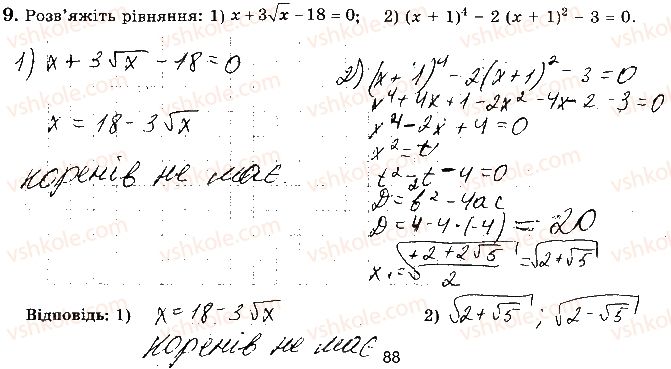 9. Розв'яжіть рівняння: 1) x + 3√x − 18 = 0; 2) (x + 1)⁴ − 2 (x + 1)² − 3 = 0.
1) x + 3√x − 18 = 0
x = 18 − 3√x
коренів не має
2) (x + 1)⁴ − 2(x + 1)² − 3 = 0
x⁴ + 4x + 1 − 2x² − 4x − 2 − 3 = 0
x⁴ − 2x + 4 = 0
x² = t
t² − 2t − 4 = 0
D = b² − 4ac
D = 4 − 4 · (−4) = 20
x₁ = √(+2 + 2√5)/2 = √(2 + √5)
Відповідь: 1) x = 18 − 3√x
коренів не має
2) √(2 + √5) ; √(2 − √5)
88
vshkole.com